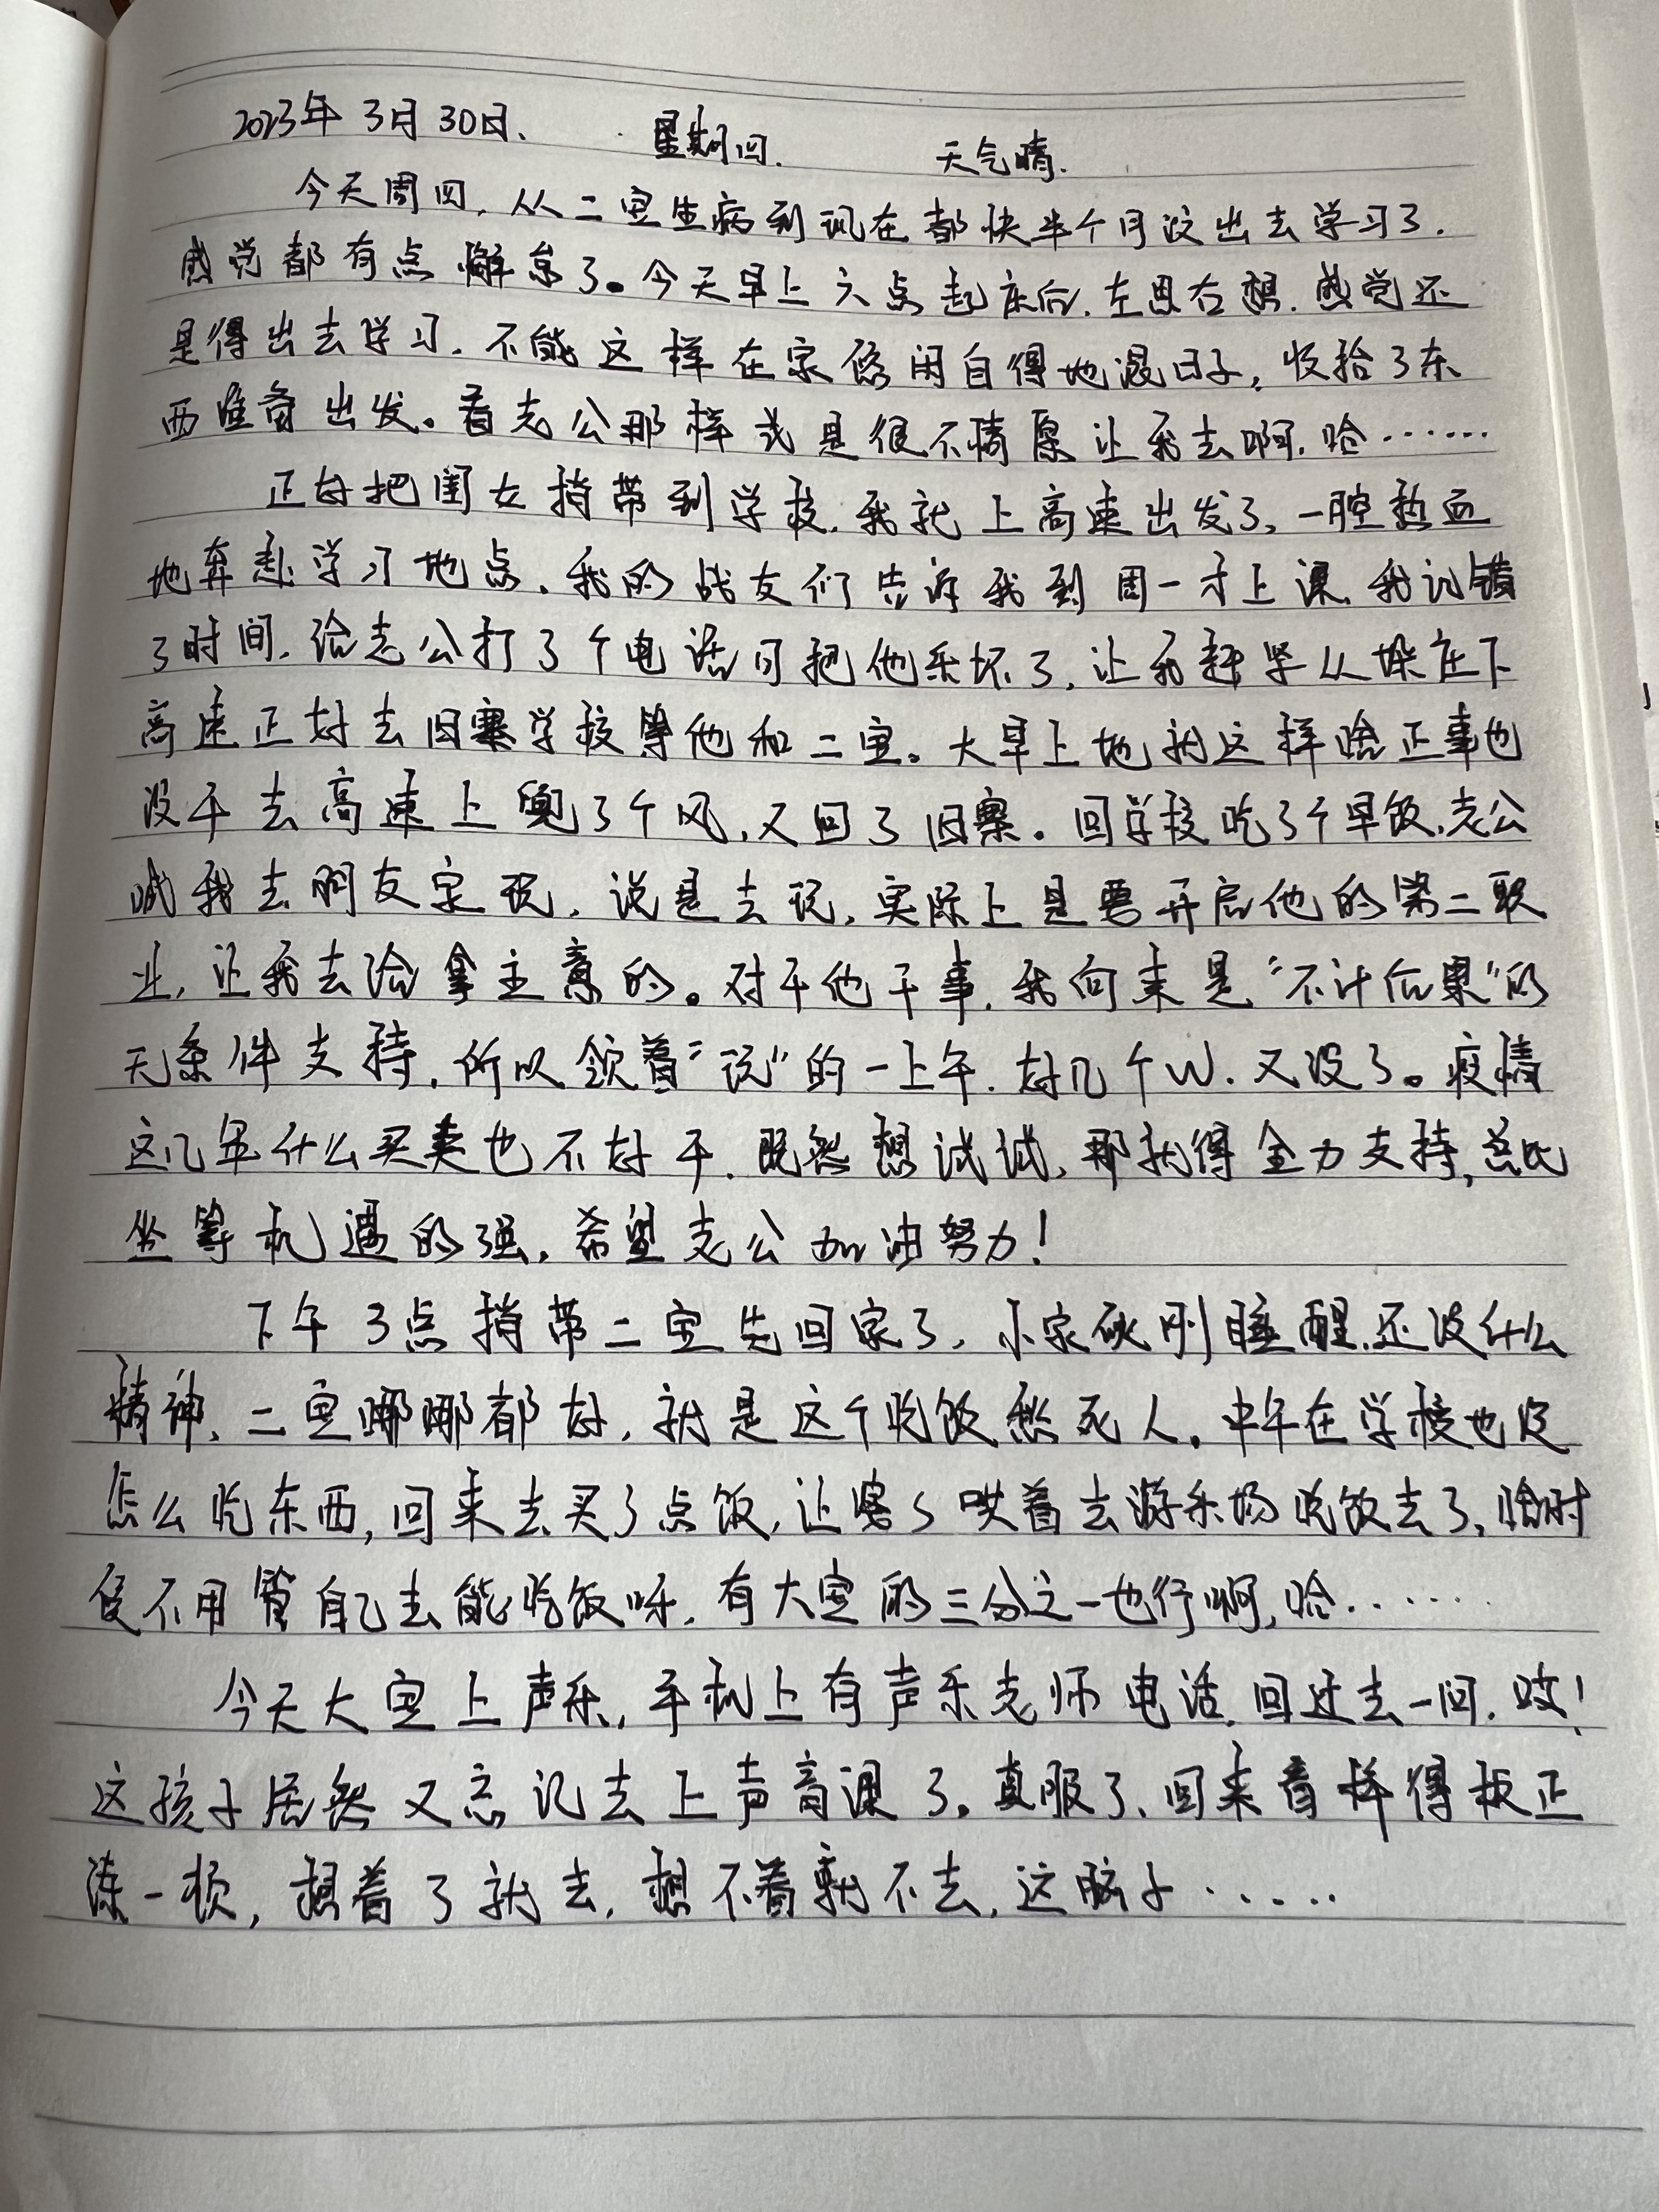 2023年3月30日. 星期四. 天气晴.
今天周四，从二宝生病到现在都快半个月没出去学习了.
感觉都有点懈怠了。今天早上六点起床后，左思右想，感觉还
是得出去学习，不能这样在家悠闲自得地混日子，收拾了东
西准备出发。看老公那样或是很不情愿让我去啊，哈……
正好把闺女捎带到学校，我就上高速出发了，一腔热血
地奔赴学习地点，我的战友们告诉我到周一才上课，我记错
了时间，给老公打了个电话可把他乐坏了，让我赶紧从垛庄下
高速正好去旧寨学校等他和二宝。大早上地就这样啥正事也
没干去高速上兜了个风，又回了旧寨。回学校吃了个早饭，老公
喊我去朋友家玩，说是去玩，实际上是要开启他的第二职
业，让我去给拿主意的。对于他干事，我向来是“不计后果”的
无条件支持，所以领着“玩”的一上午，好几个W，又没了。疫情
这几年什么买卖也不好干，既然想试试，那就得全力支持，总比
坐等机遇的强，希望老公加油努力！
下午3点捎带二宝先回家了，小家伙刚睡醒，还没什么
精神，二宝哪哪都好，就是这个吃饭愁死人。中午在学校也没
怎么吃东西，回来去买了点饭，让客了哄着去游乐场吃饭去了，啥时
侯不用管自己去能吃饭呀，有大宝的三分之一也行啊，哈……
今天大宝上声乐，手机上有声乐老师电话，回过去一问，哎！
这孩子居然又忘记去上声音课了。真服了，回来看样得板正
凑一顿，想着了就去，想不着就不去，这脑子……